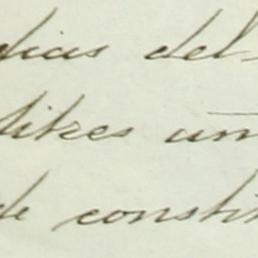 dias del
litres un
de constit